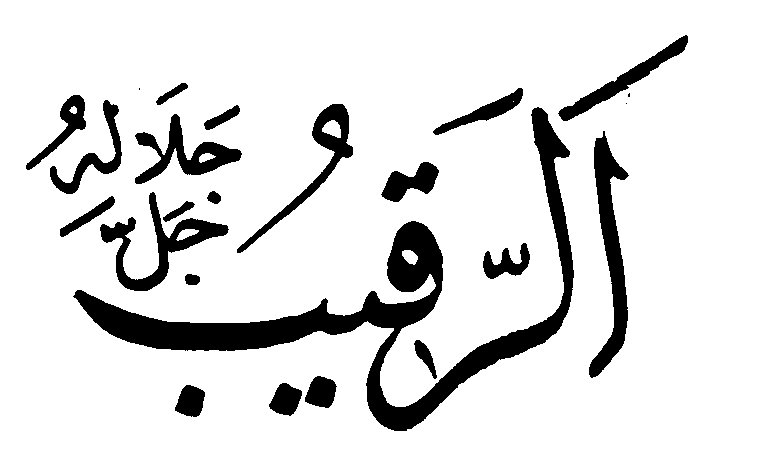 اَلرَّقِيبُ
جَلَّ جَلَالُهُ